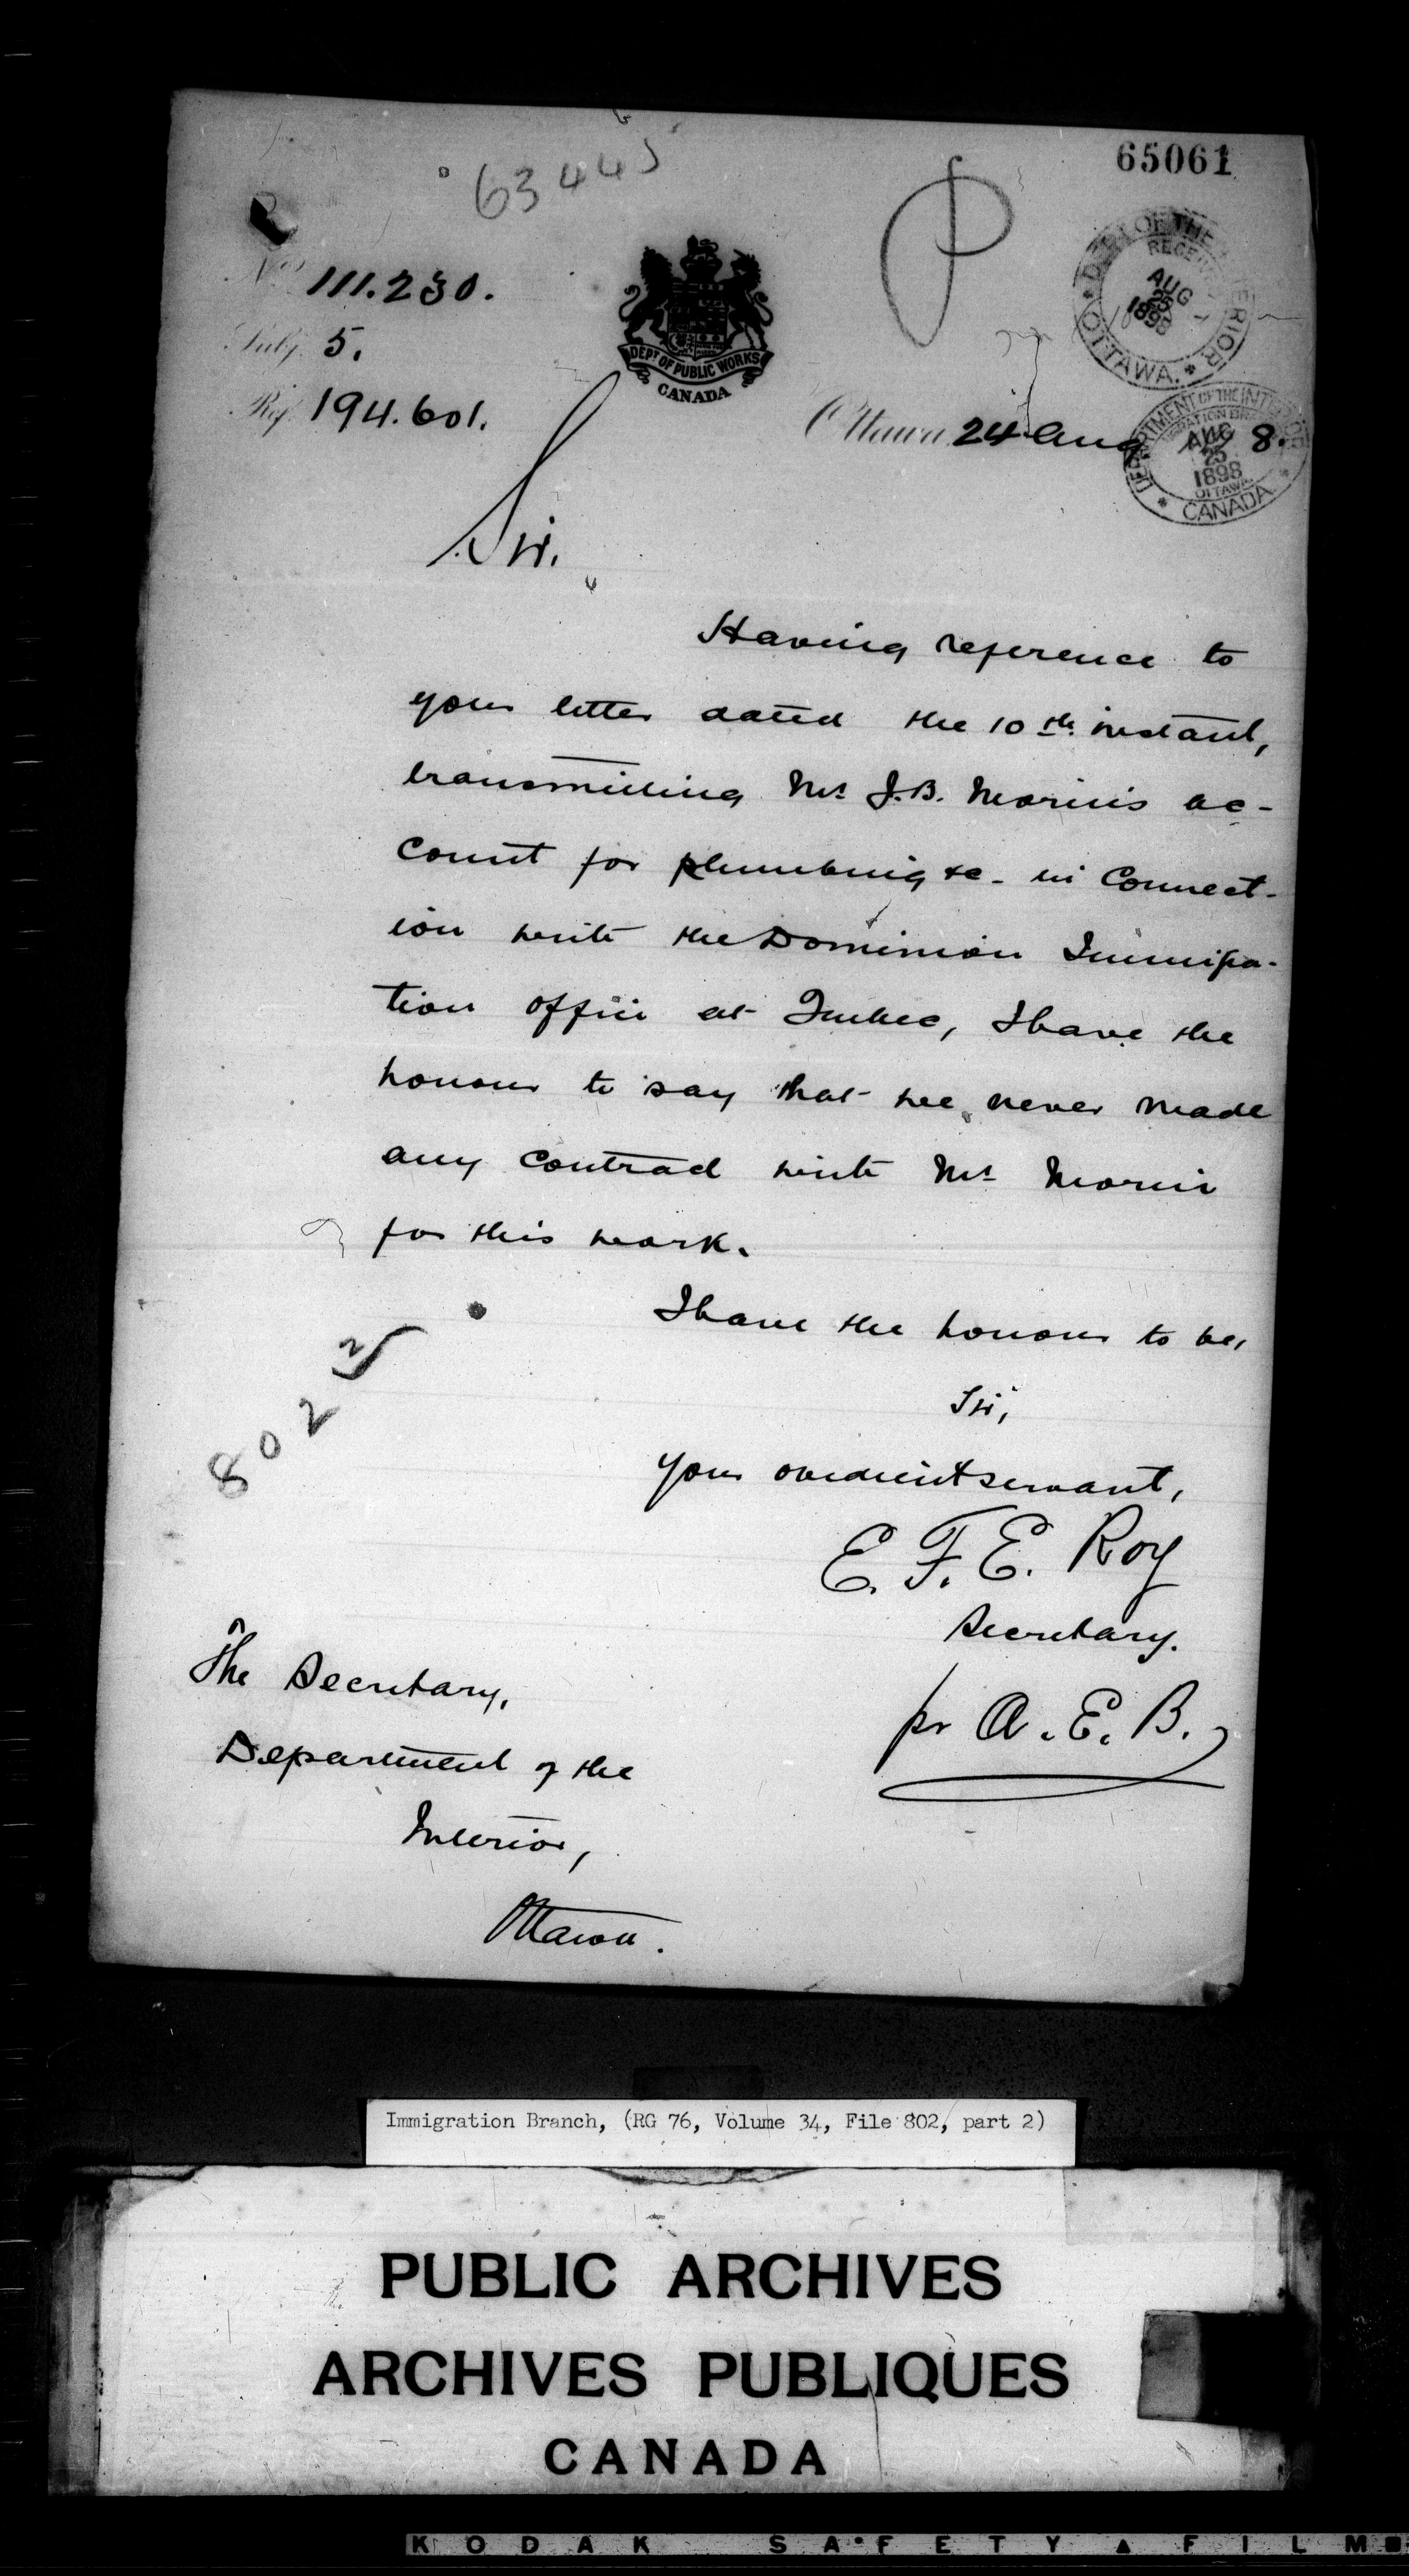 65061
63445
No 111.230.
Subj. 5.
Ref. 194.601.
DEPT OF PUBLIC WORKS
CANADA
DEPT OF THE INTERIOR
RECEIVED
AUG 25
1898
OTTAWA.
Ottawa 24 Aug 8.
DEPARTMENT OF THE INTERIOR
IMMIGRATION BRANCH
AUG
25
1898
OTTAWA
CANADA
Sir.
Having reference to
your letter dated the 10th. instant,
transmitting Mr J.B. Morin's ac-
count for plumbing &c - in connect-
ion with the Dominion Immigra-
tion office at Quebec, I have the
honour to say that we never made
any contract with Mr Morin
for this work.
I have the honour to be,
Sir,
Your obedient servant,
E. F. E. Roy
Secretary.
pr A. E. B.
802
2
The Secretary,
Department of the
Interior,
Ottawa.
Immigration Branch, (RG 76, Volume 34, File 802, part 2)
PUBLIC ARCHIVES
ARCHIVES PUBLIQUES
CANADA
KODAK SAFETY ▲ FILM